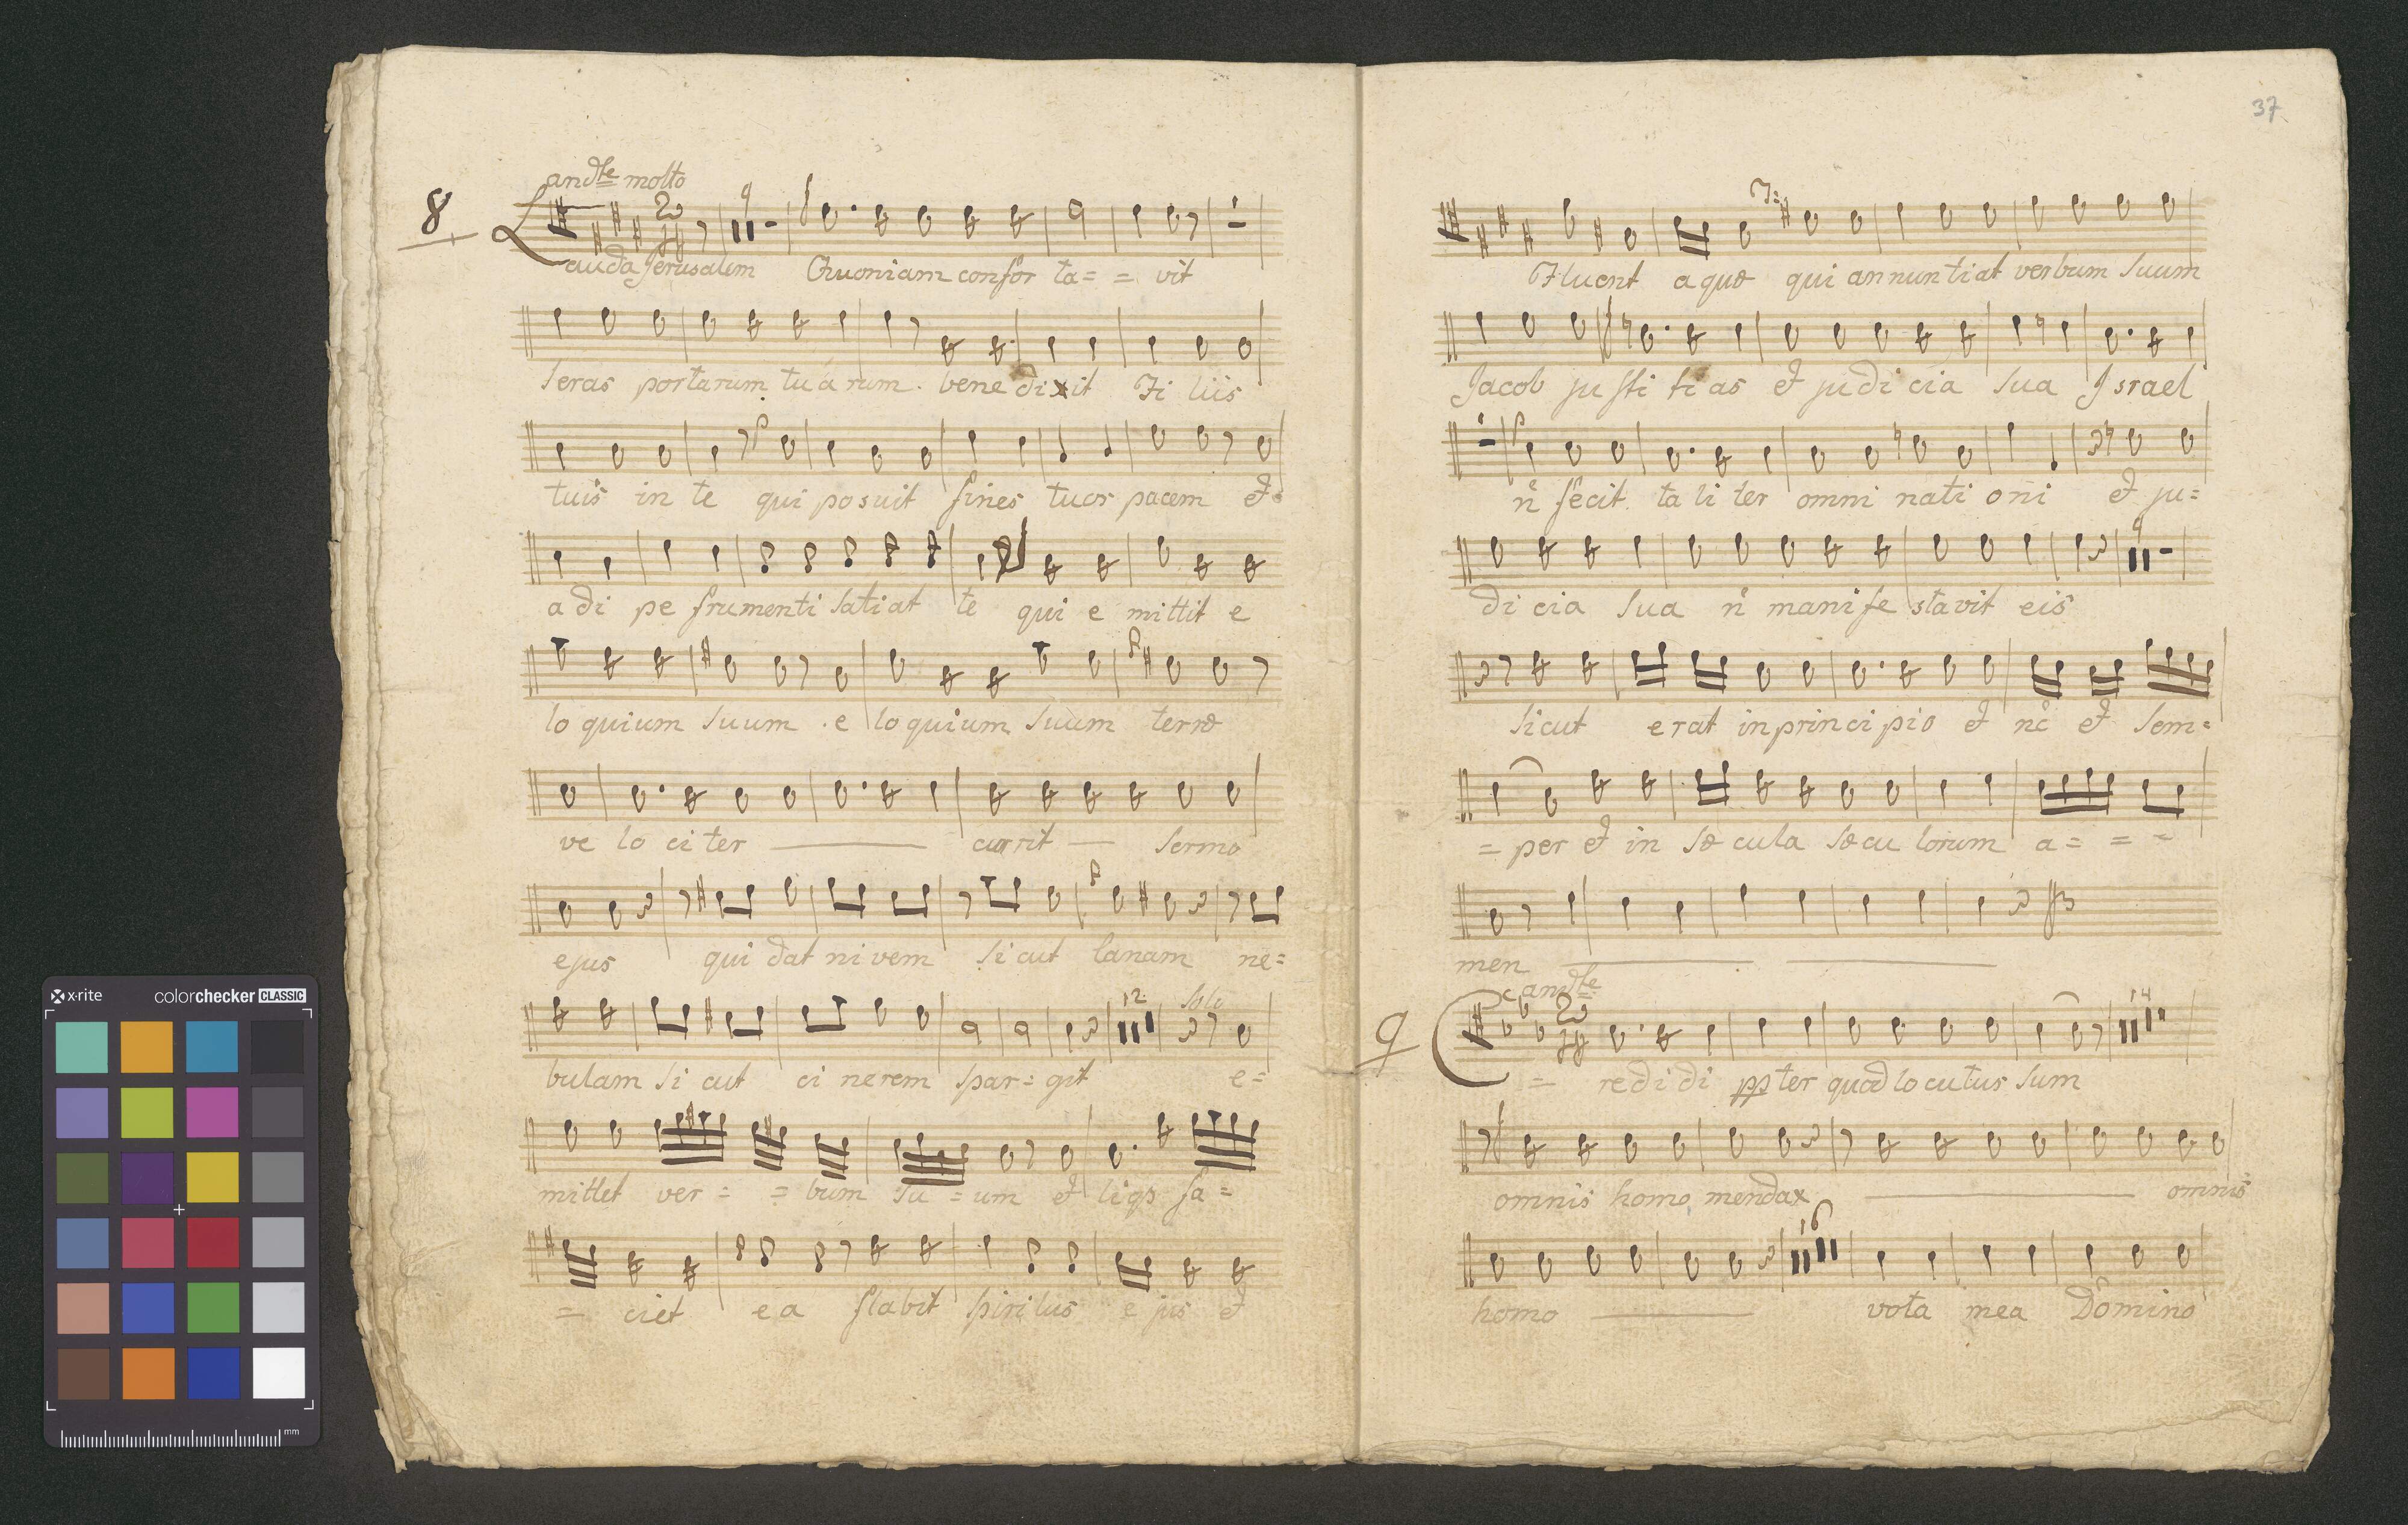 x-rite colorchecker CLASSIC
mm
8
andte molto
9
Lauda Jerusalem Quoniam confor ta= = vit
seras portarum tuarum. benedixit Filiis
tuis in te qui posuit fines tuos pacem et
adi pe frumenti satiat te qui e mittit e
loquium suum . e loquium suum terræ
ve lo ci ter currit sermo
ejus qui dat nivem sicut lanam ne=
12 Solo
bulam si cut ci nerem spar= git e=
mittet ver= = bum su = um et fa=
= ciet ea flabit spiritus ejus et
37
Fluent aquæ qui annuntiat verbum suum
Jacob justi ti as et judi cia sua Israel
n fecit ta li ter omni nati oni et ju=
9
di cia sua n manife stavit eis
sicut erat in principio et nc et sem=
= per et in sæ cula sæcu lorum a= = =
men
9
andte
14
C = redi di ppter quod locutus sum
omnis homo mendax omnis
16
homo vota mea Domino